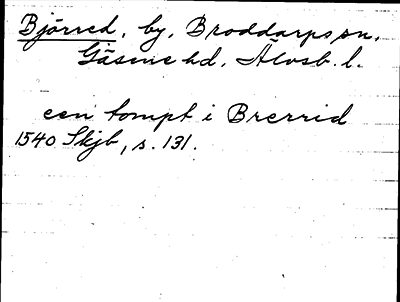 Björred, by, Broddarps sn,
Gäsene hd, Älvsb. l.
een tompt i Brerrid
1540 Skjb, s. 131.